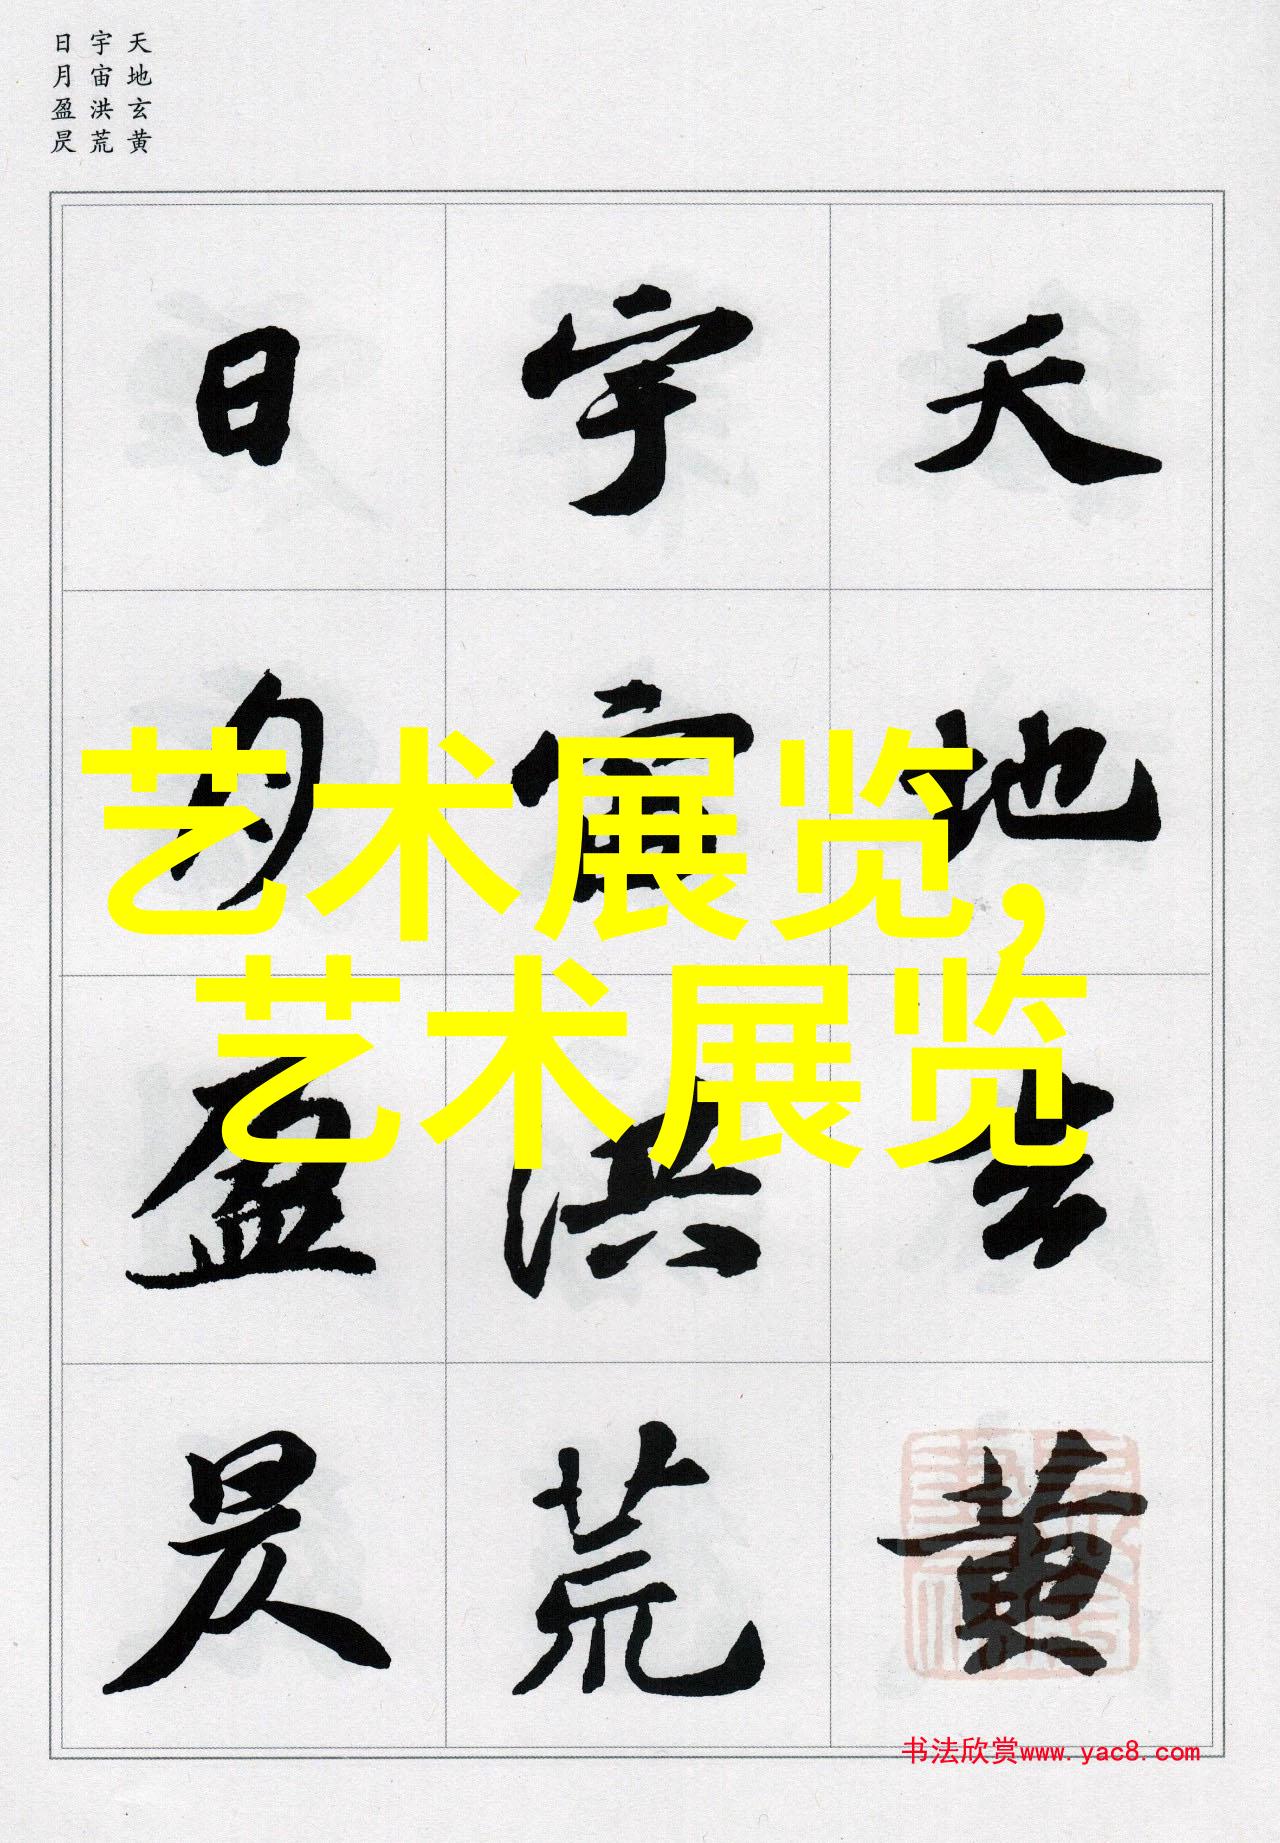 天地玄黄
宇宙洪荒
日月盈昃
天地玄黄
宇宙洪荒
日月盈昃
艺术展览，
艺术展览
书法欣赏www.yac8.com